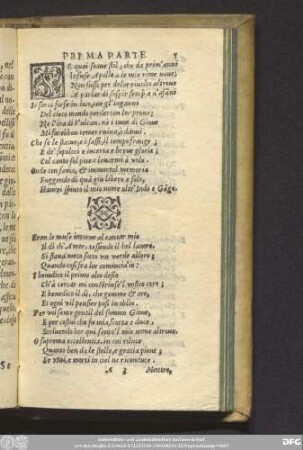 PRIMA PARTE 5
SE quel soave stil, che da prim'anni
Infuse Apollo a le mie rime nove,
Non fusse per dolor rivolto altrove
A parlar di sospir sempre e d'affanni
Io sarei forse in loco, ove gl'inganni
Del cieco mondo perderian lor prove;
Ne l'ira di Vulcan, nè i tuoni di Giove
Mi farebbon temer ruina, ò danni.
Che se le statue, e i sassi, il tempo frange;
E de' sepolcri è incerta e breve gloria;
Col canto sol potea levarmi à volo:
Onde con fama, et immortal memoria
Fuggendo di qua giù libero e solo,
Havrei spinto il mio nome oltr'Indo e Gange.
Eran le muse intorno al cantar mio
Il dì ch'Amor tessendo il bel lavoro,
Si stava meco sotto un verde alloro;
Quando così fra lor cominciai io:
I benedico il primo alto desio
Ch'à cercar mi constrinse'l vostro coro;
E benedico il dì, che gemme & oro,
Et ogni vil pensier posi in oblio.
Per voi seme gentil del sommo Giove,
E per costui che fu mia scorta e duce,
Scrivendo hor quì sento'l mio nome altrove.
O suprema eccellentia, in cui riluce
Quanto ben da le stelle, e gratia piove;
Et vivi, e morti in ciel ne riconduce.
A 3 Mentre,